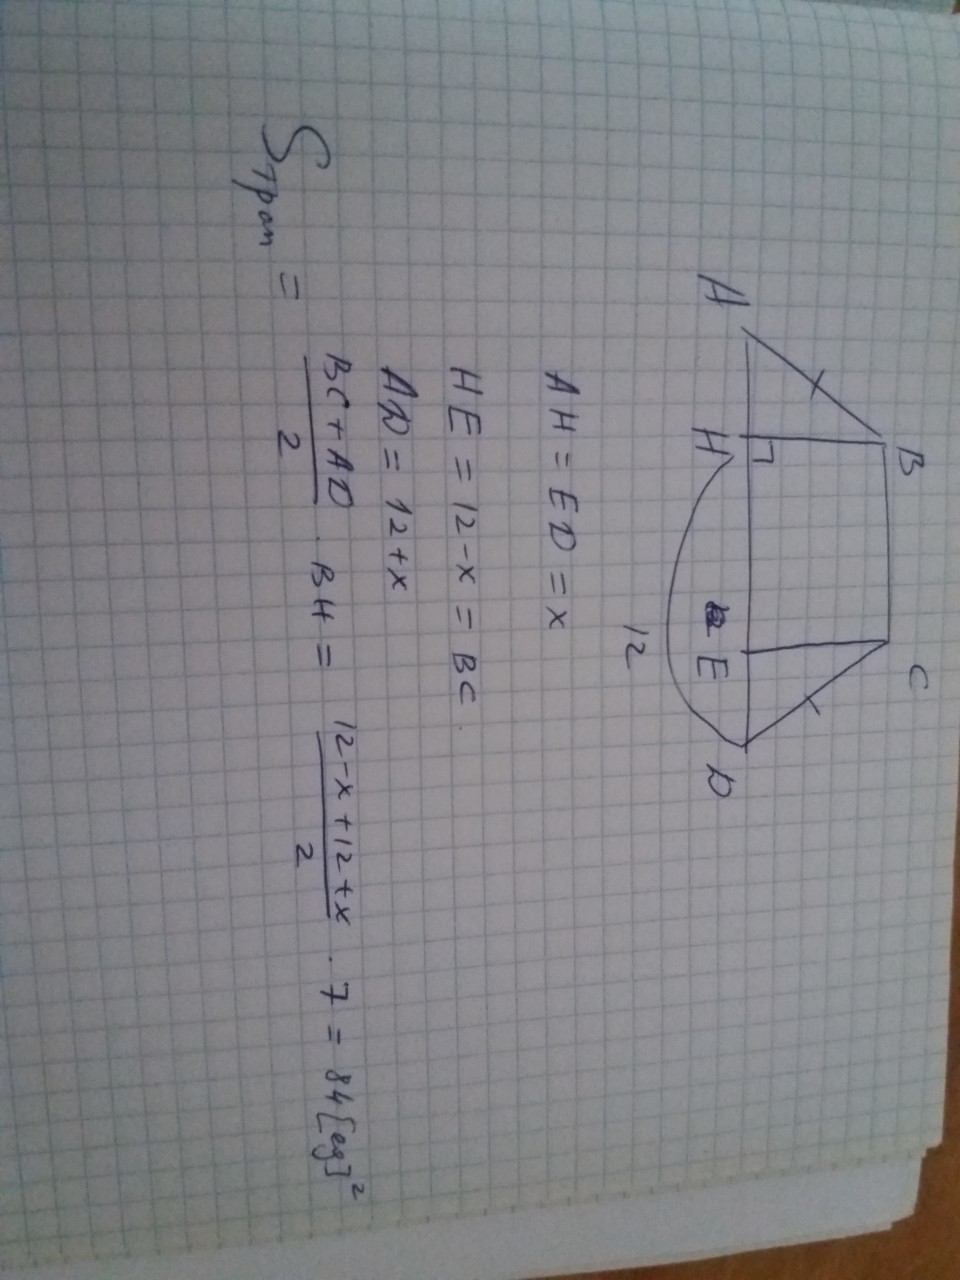 B C
A H E D
12
AH = ED = x
HE = 12-x = BC.
AD = 12+x
Sтрап = BC+AD/2 · BH = 12-x+12+x/2 · 7 = 84[eg]²